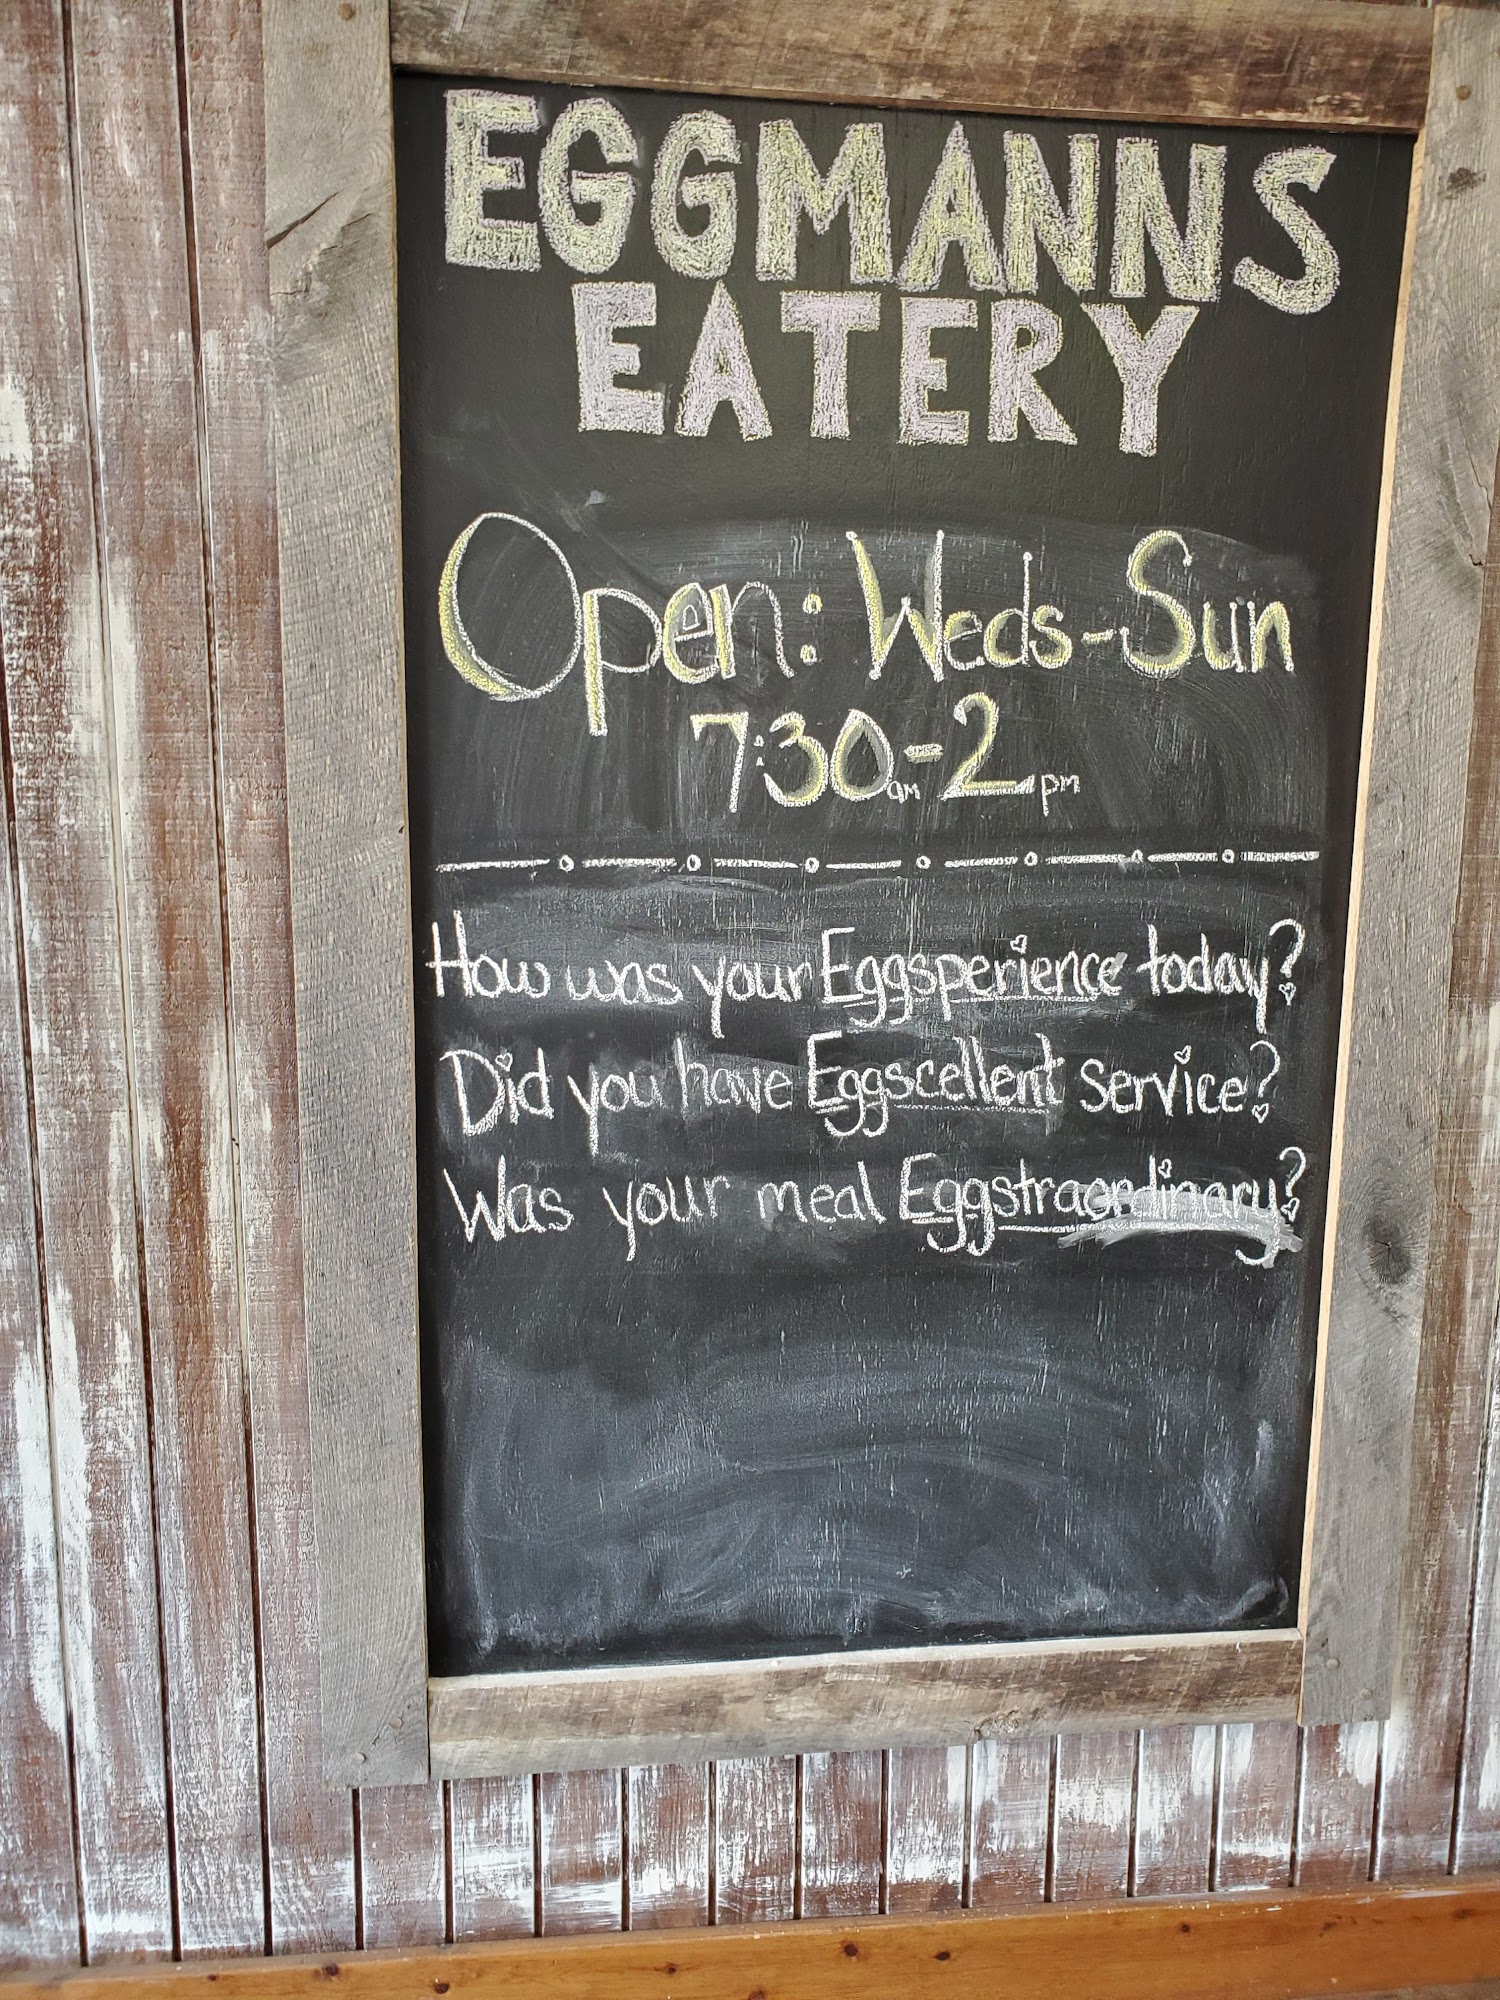 EGGMANNS
EATERY
Open: Weds-Sun
7:30am-2pm
How was your Eggsperience today?
Did you have Eggscellent service?
Was your meal Eggstraordinary?